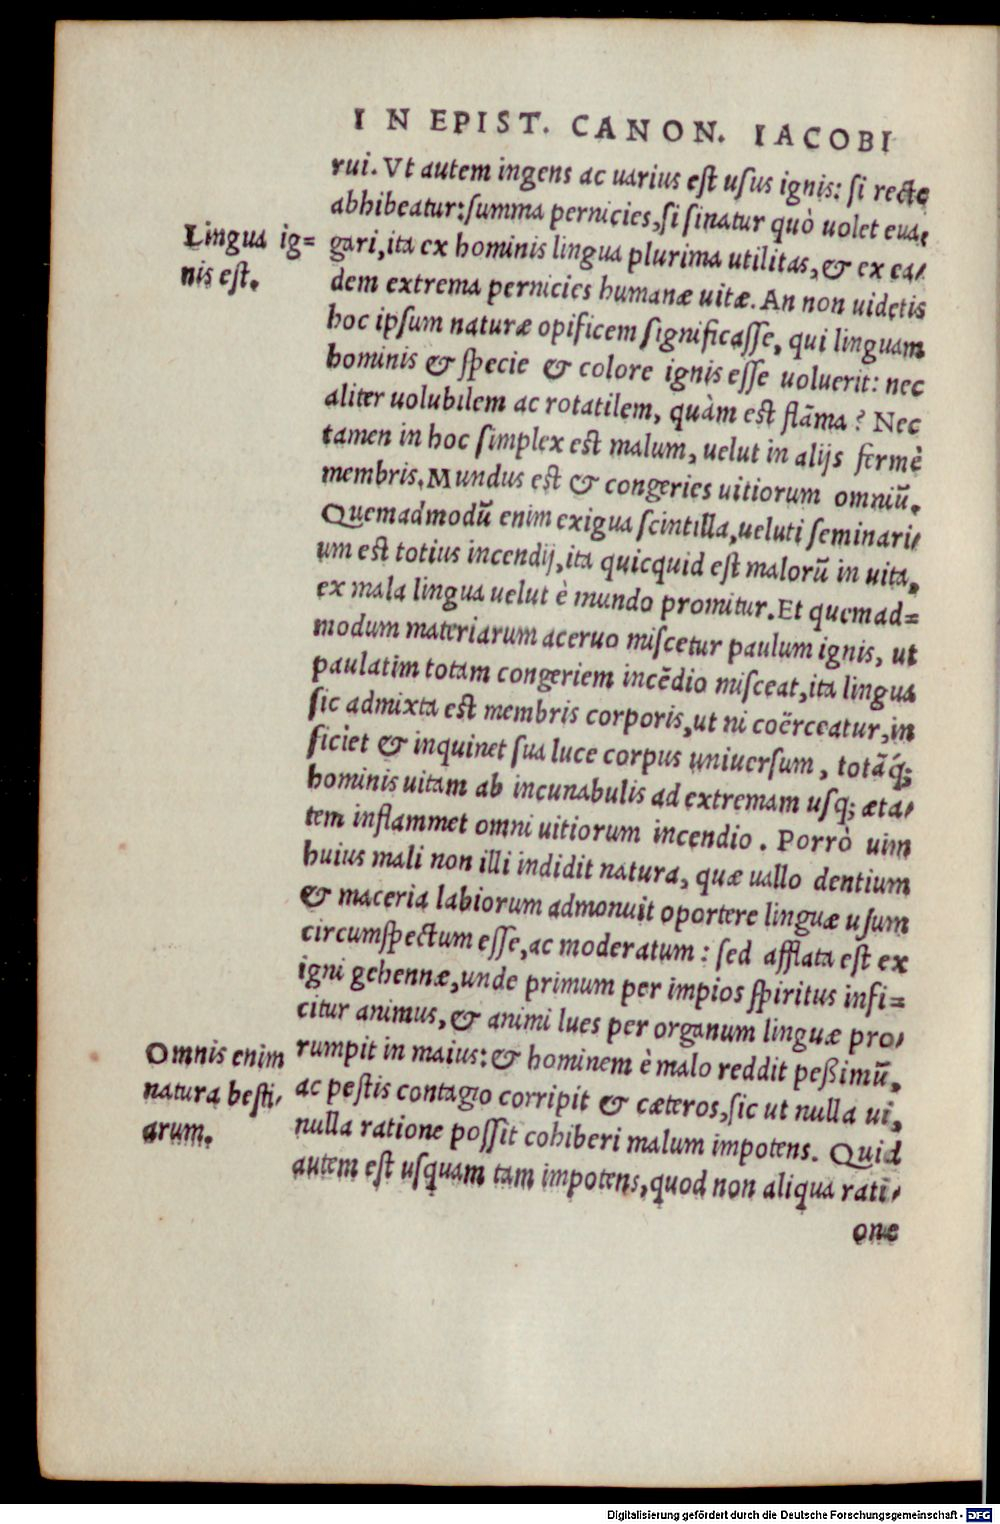 IN EPIST. CANON. IACOBI
rui. Vt autem ingens ac uarius est usus ignis: si recte
abhibeatur: summa pernicies, si sinatur quò uolet eua,
Lingua ig=
nis est.
gari, ita ex hominis lingua plurima utilitas, & ex ea,
dem extrema pernicies humanæ uitæ. An non uidetis
hoc ipsum naturæ opificem significasse, qui linguam
hominis & specie & colore ignis esse uoluerit: nec
aliter uolubilem ac rotatilem, quàm est flāma? Nec
tamen in hoc simplex est malum, uelut in alijs fermè
membris. Mundus est & congeries uitiorum omniū.
Quemadmodū enim exigua scintilla, ueluti seminari,
um est totius incendij, ita quicquid est malorū in uita,
ex mala lingua uelut è mundo promitur. Et quemad=
modum materiarum aceruo miscetur paulum ignis, ut
paulatim totam congeriem incēdio misceat, ita lingua
sic admixta est membris corporis, ut ni coërceatur, in
ficiet & inquinet sua luce corpus uniuersum, totāq́;
hominis uitam ab incunabulis ad extremam usq; æta,
tem inflammet omni uitiorum incendio. Porrò uim
huius mali non illi indidit natura, quæ uallo dentium
& maceria labiorum admonuit oportere linguæ usum
circumspectum esse, ac moderatum: sed afflata est ex
igni gehennæ, unde primum per impios spiritus infi=
citur animus, & animi lues per organum linguæ pro,
Omnis enim
natura besti,
arum.
rumpit in maius: & hominem è malo reddit peßimū,
ac pestis contagio corripit & cæteros, sic ut nulla ui,
nulla ratione possit cohiberi malum impotens. Quid
autem est usquam tam impotens, quod non aliqua rati,
one
Digitalisierung gefördert durch die Deutsche Forschungsgemeinschaft - DFG